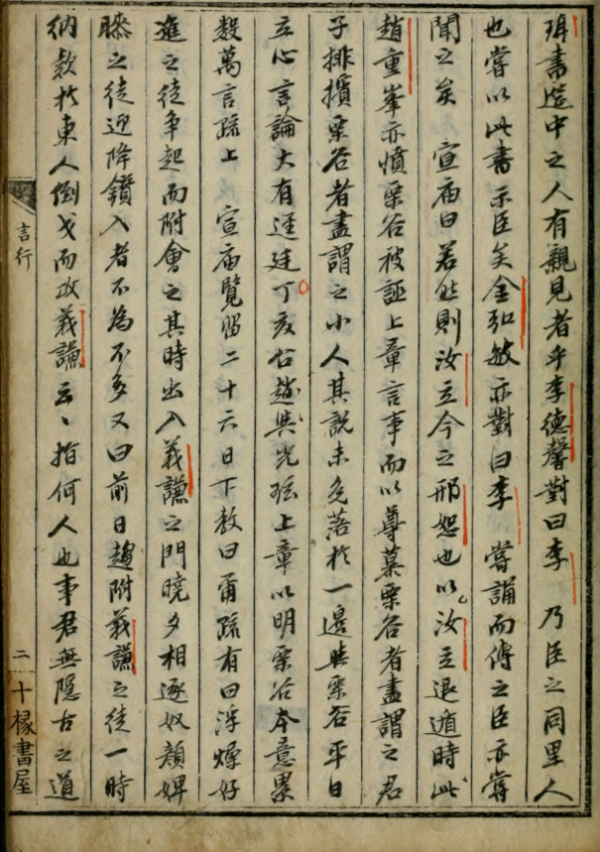 珥書筵中之人有親見者乎李德馨對曰李 乃臣之同里人
也嘗以此書示臣矣金弘敏亦對曰李 嘗誦而傳之臣亦嘗
聞之矣 宣庙曰若然則汝立今之邢恕也以汝立退遁時此
趙重峯亦憤栗谷被誣上章言事而以尊慕栗谷者盡謂之君
子排擯栗谷者盡謂之小人其說未免落於一邊與栗谷平日
立心言論大有逕廷丁亥公趙與光玹上章以明栗谷本意累
數萬言疏上 宣庙覽留二十六日下教曰爾疏有曰浮燥好
進之徒争起而附會之其時出入義謙之門曉夕相逐奴顔婢
膝之徒迎降鑽入者不為不多又曰前日趨附義謙之徒一時
納款於東人倒戈而攻義謙云〻指何人也事君無隠古之道
言行
二
十椽書屋